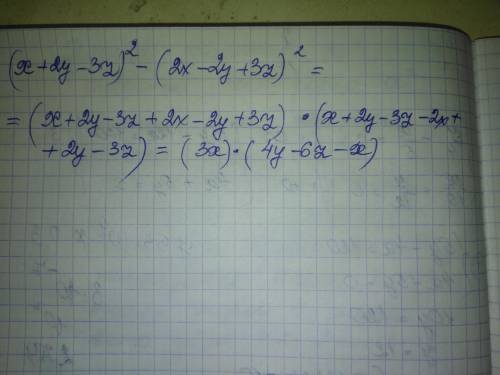 (x+2y-3z)² - (2x-2y+3z)² =
= (x+2y-3z+2x-2y+3z) · (x+2y-3z-2x+
+2y-3z) = (3x)·(4y-6z-x)